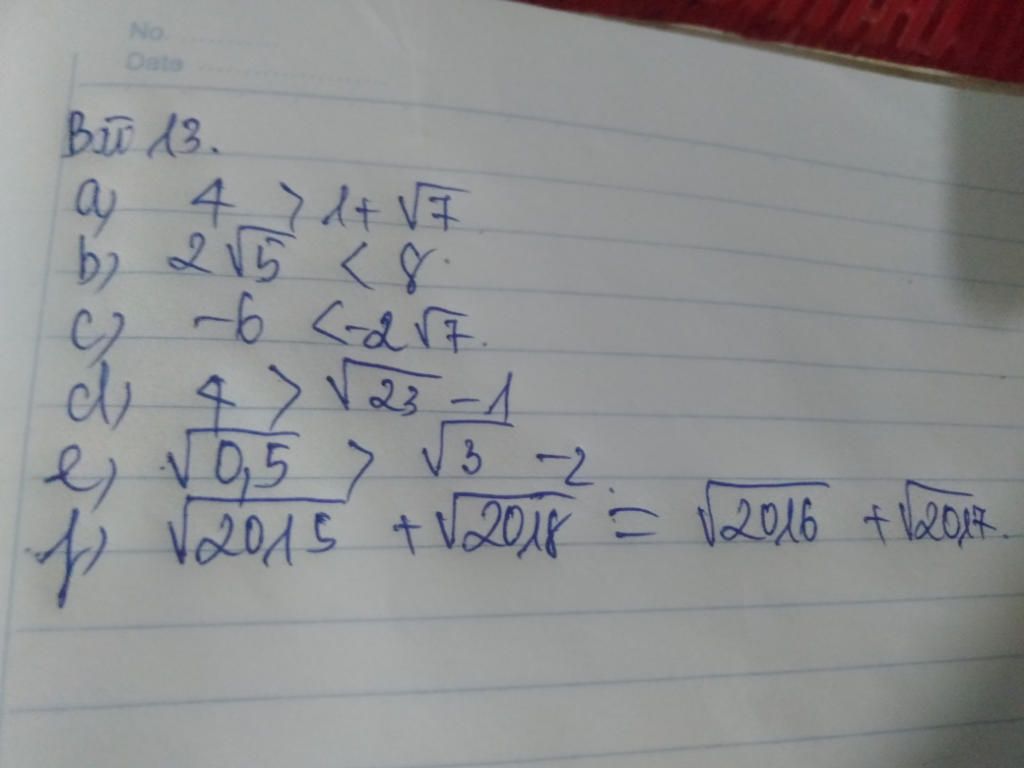 No. ............
Date ....................
Bài 13.
a) 4 > 1 + √7
b) 2√5 < 8.
c) -6 < -2√7.
d) 4 > √23 - 1
e) √0,5 > √3 - 2.
f) √2015 + √2018 = √2016 + √2017.